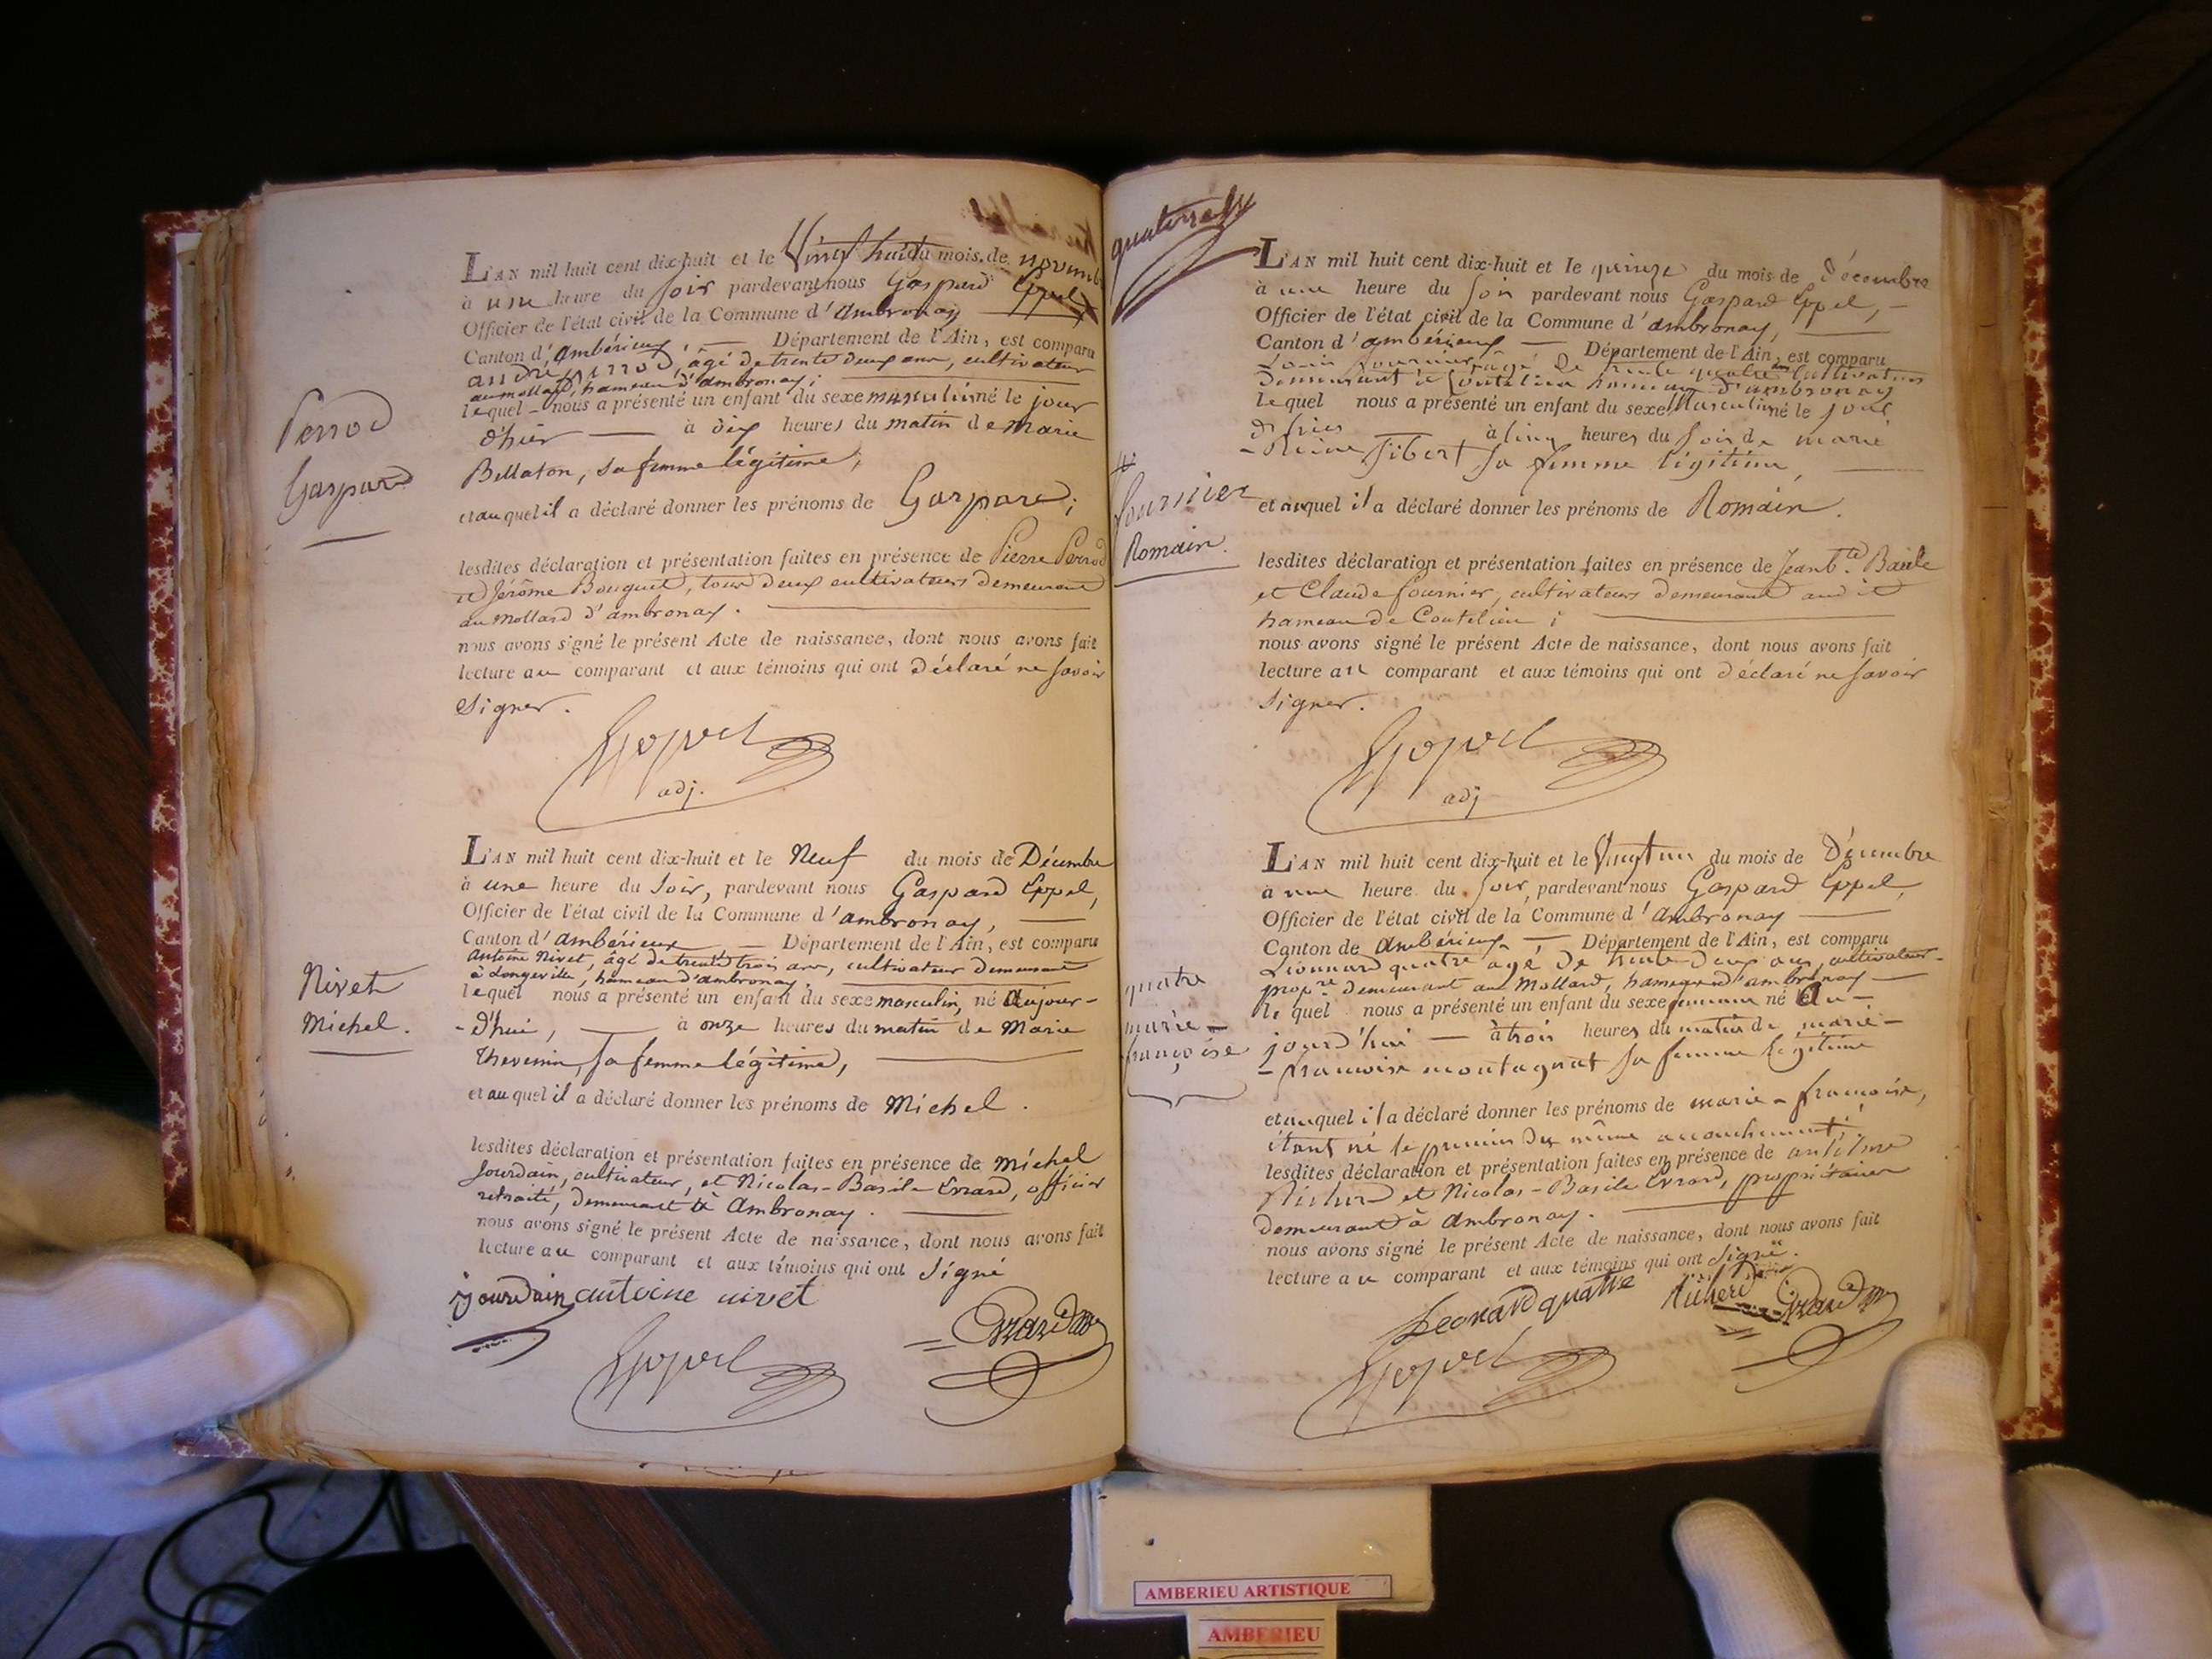 Perrod
Gaspard
L'AN mil huit cent dix-huit et le Vingt huit du mois de novembre
à une heure du soir pardevant nous Gaspard Eppel
Officier de l'état civil de la Commune d'ambronay
Canton d'ambérieux, Département de l'Ain, est comparu
andré perrod, âgé de trente deux ans, cultivateur
au mollard, hameau d'ambronay;
lequel nous a présenté un enfant du sexe masculin né le jour
d'hier à dix heures du matin de marie
Bellaton, sa femme légitime,
et auquel il a déclaré donner les prénoms de Gaspard;
lesdites déclaration et présentation faites en présence de Pierre Perrod
et Jérôme Bouguet, tous deux cultivateurs demeurant
au mollard d'ambronay.
nous avons signé le présent Acte de naissance, dont nous avons fait
lecture au comparant et aux témoins qui ont déclaré ne savoir
signer.
adj.
Nivet
Michel.
L'AN mil huit cent dix-huit et le Neuf du mois de Décembre
à une heure du soir, pardevant nous Gaspard Eppel,
Officier de l'état civil de la Commune d'ambronay,
Canton d'ambérieux, Département de l'Ain, est comparu
antoine Nivet, âgé de trente trois ans, cultivateur demeurant
à Longeville, hameau d'ambronay,
lequel nous a présenté un enfant du sexe masculin, né aujour-
-d'hui, à onze heures du matin de Marie
Thevenin, sa femme légitime,
et auquel il a déclaré donner les prénoms de Michel.
lesdites déclaration et présentation faites en présence de michel
Jourdain, cultivateur, et Nicolas-Basile Evrard, officier
retraité, demeurant à Ambronay.
nous avons signé le présent Acte de naissance, dont nous avons fait
lecture au comparant et aux témoins qui ont signé
jourdain antoine nivet
Evrard
fournier
Romain.
L'AN mil huit cent dix-huit et le quinze du mois de décembre
à une heure du soir pardevant nous Gaspard Eppel,
Officier de l'état civil de la Commune d'ambronay,
Canton d'ambérieux Département de l'Ain, est comparu
Louis fournier âgé de trente quatre ans cultivateur
demeurant à Coutelieu hameau d'ambronay
lequel nous a présenté un enfant du sexe Masculin né le jour
d'hier à cinq heures du soir de marie
-Reine Jibert sa femme légitime,
et auquel il a déclaré donner les prénoms de Romain.
lesdites déclaration et présentation faites en présence de Jean bte. Basile
et Claude fournier, cultivateurs demeurant audit
hameau de Coutelieu;
nous avons signé le présent Acte de naissance, dont nous avons fait
lecture au comparant et aux témoins qui ont déclaré ne savoir
signer.
adj
quatre
marie-
françoise
L'AN mil huit cent dix-huit et le Vingt un du mois de Décembre
à une heure du soir, pardevant nous Gaspard Eppel,
Officier de l'état civil de la Commune d'ambronay
Canton de ambérieux Département de l'Ain, est comparu
Lionnard quatre agé de trente deux ans, cultivateur-
propre. demeurant au Mollard, hameau d'ambronay
lequel nous a présenté un enfant du sexe féminin né au-
jourd'hui à trois heures du matin de marie-
-francoise montagnat sa femme légitime
et auquel il a déclaré donner les prénoms de marie-francoise,
étant né le premier du même accouchement.
lesdites déclaration et présentation faites en présence de antelme
Richerd et Nicolas-Basile Evrard, propriétaires
demeurant à ambronay.
nous avons signé le présent Acte de naissance, dont nous avons fait
lecture au comparant et aux témoins qui ont signé.
Leonard quatre Richerd Evrard
AMBERIEU ARTISTIQUE
AMBERIEU